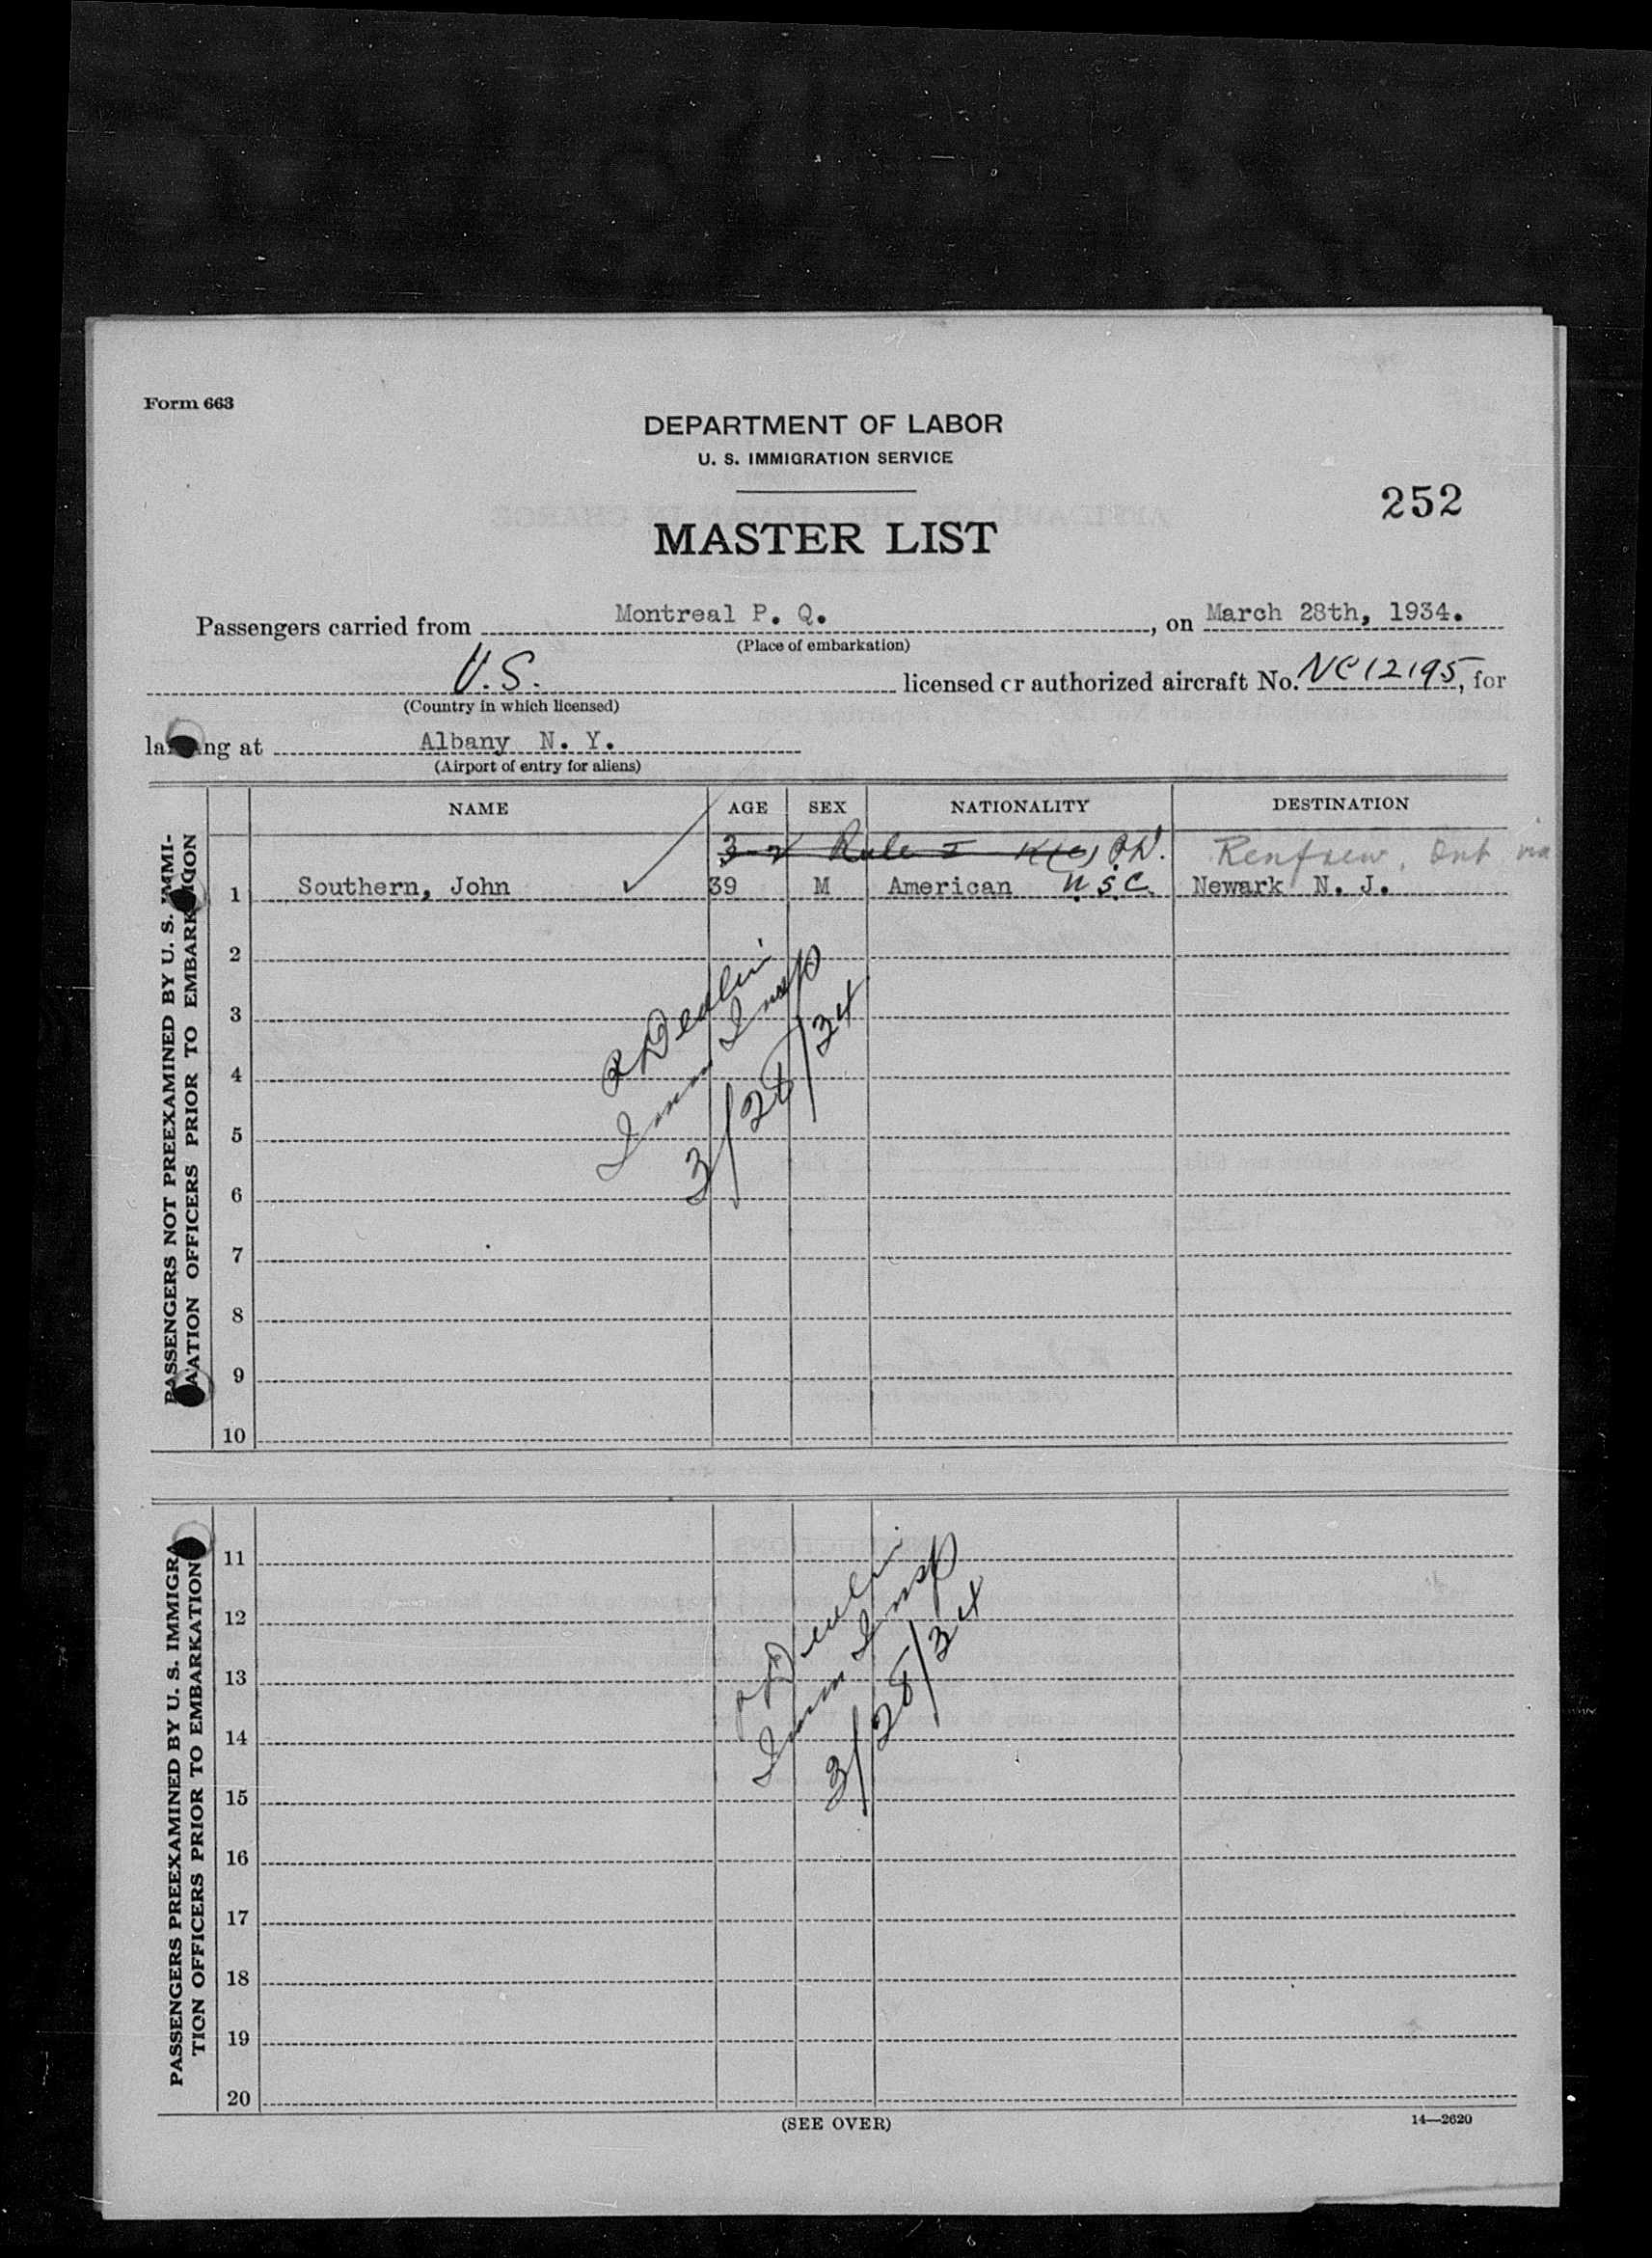 Form 663
DEPARTMENT OF LABOR
U. S. IMMIGRATION SERVICE
252
MASTER LIST
Passengers carried from Montreal P. Q., on March 28th, 1934.
(Place of embarkation)
U.S. licensed or authorized aircraft No. NC12195, for
(Country in which licensed)
landing at Albany N. Y.
(Airport of entry for aliens)
NAME AGE SEX NATIONALITY DESTINATION
3-2 Rule I Renfrew, Ont via
1 Southern, John ✓ 39 M American U.S.C. Newark N. J.
2
3
4
5
6
7
8
9
10
PASSENGERS NOT PREEXAMINED BY U. S. IMMI-
GRATION OFFICERS PRIOR TO EMBARKATION
Devlin
Imm Insp
3/28/34
11
12
13
14
15
16
17
18
19
20
PASSENGERS PREEXAMINED BY U. S. IMMIGRA-
TION OFFICERS PRIOR TO EMBARKATION
Devlin
Imm Insp
3/28/34
(SEE OVER)
14—2620